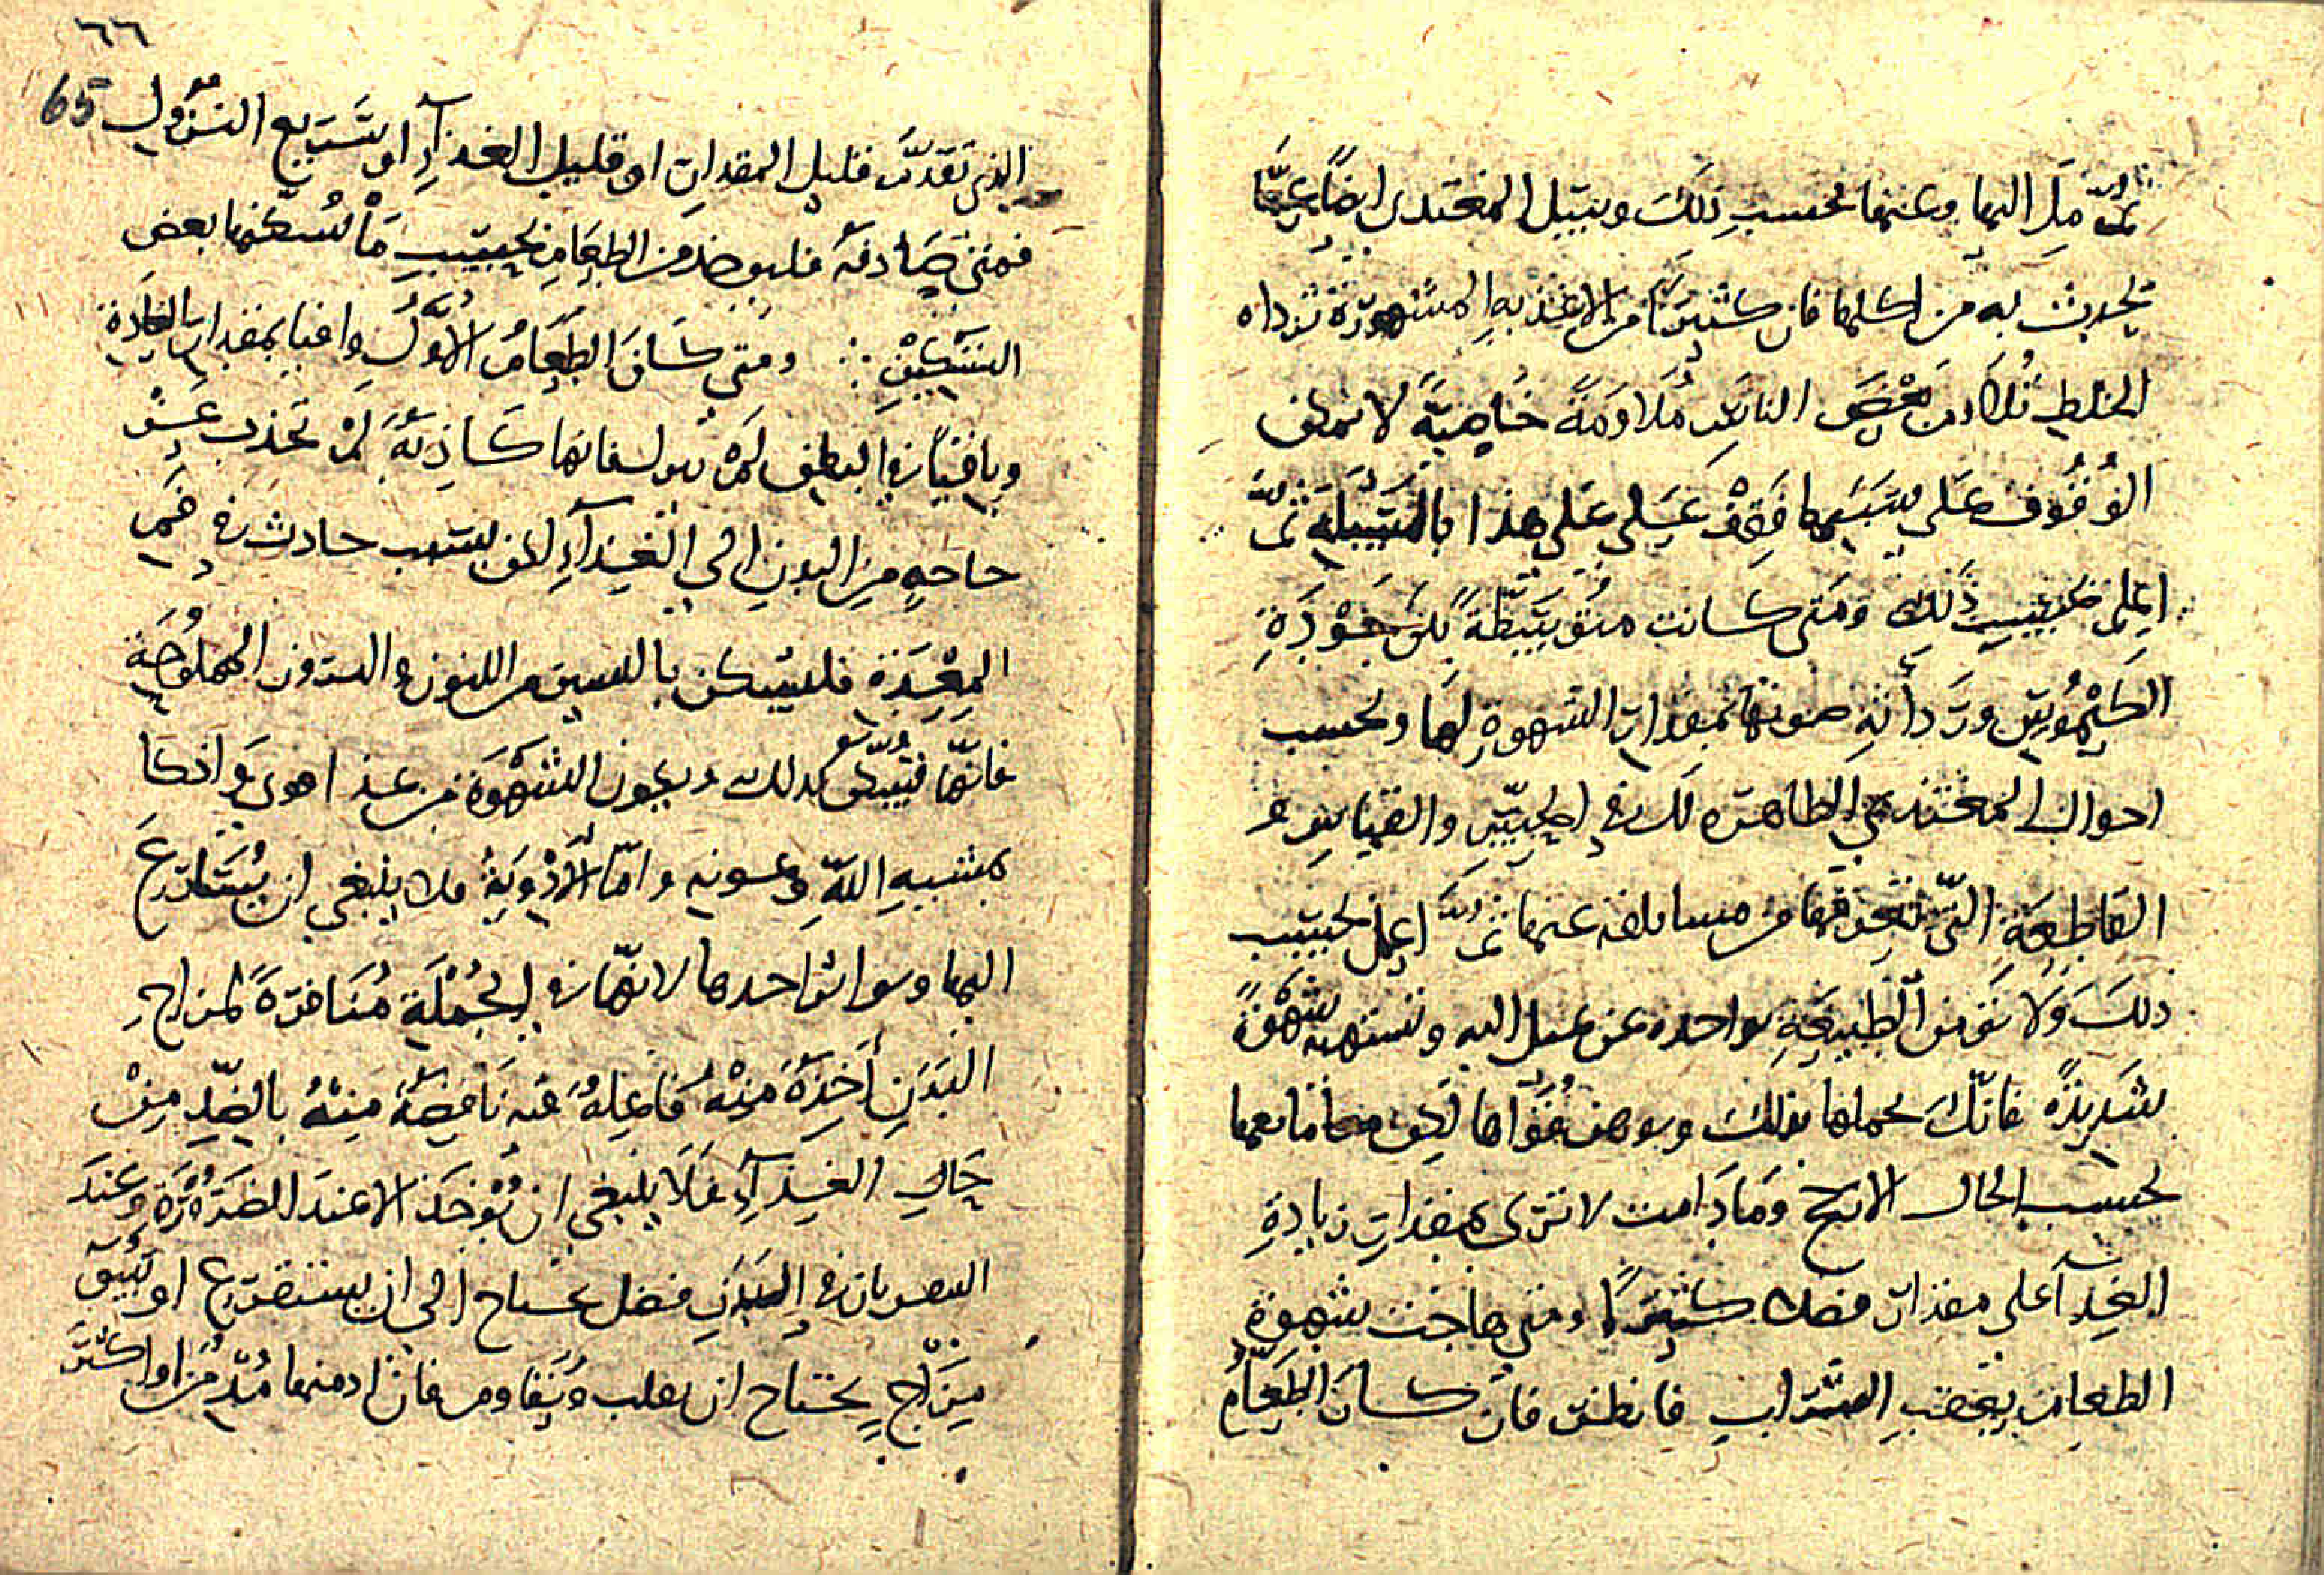 ثمّ مِل اليها وعنها بحسب ذلكَ ويسئل المغتدى ايضاً عمَّا
يحدث به من اكلها فان كثيرًا من الاغذيه المشهورة برداه
الخلط تُلاوم بَعْضَ الناسِ مُلاوَمَةً خَاصِّيَّةً لا يمكن
الوُقُوف عَلى سَبَبها فَقِفْ عَلى عَلى هذا بالمَسْئلة ثمَّ
اعمل بحسب ذَلِكَ ومَتى كانت متوسِّطةً بين جَوْدَةِ
الكَيْمُوس وردَأته صونها بمقدار الشهوة لها وبحسب
احوال المغتدى الظاهره لك في الحِسِّ والقياس و
القاطِعَةِ التى تتعرفها من مسايلته عنها ثمَّ اعمل بحسب
ذلكَ وَلَا الطَبِيعَةِ واحده عن ميل اليه وتشتهيه شَهْوَةً
شَدِيدَةً فانّكَ بذلكَ وتوهن قُوَّاها لكن
بحسب الحال الارجح ومَا دَامت لا تشرى بمقدارِ زيادةِ
الغِذآ على مقدار فضلا كثيرًا ومتى هاجت شهوة
الطعام بعَقبِ الشراب فانظر فان كانَ الطَعَامُ
٦٦
65
الذى تقدَّمَ قليل المقدار او قليل الغذآءِ او سَريع النزول
فمتى صَادفه فليوخذ من الطعَامِ بحسبِ مَا يُسكنها بعض
التسْكِيْنِ ∴ ومتى كانَ الطَعَامُ الاوَّل وافيا بمقدار العَادَةِ
وباقيًا في البطن لَمْ ينزل فانها كَاذِبَةٌ لَمْ تحدث عَنْ
حاجهٍ مِنَ البدنِ الى الغِذآءِ لكن بسبب حادث فى فمِ
المِعْدَة فليسكن باليسير من اللبون والبزور المملُوحَة
فانّها تُسَكِّن بذلك ويكون الشهْوَة من غذ اقوى وَاذكا
بمشيةِ اللّهِ وعونه وامّا الأدْوِيَةُ فلا ينبغى ان يُسَارَعَ
اليها وسوا ثر احدها لانّها فى الجُمْلَة مُنَافرَةً لمزاجِ
البَدَنِ أخِذَةٌ مَنْهُ فَاعِلَةٌ فيه نَاقِصَةٌ مِنْهُ بالضّدِ مِنْ
حَالِ الغِذَآءِ فَلَا ينبغى ان تُوْخَذَ الا عندَ الضَرُوْرَة وعندَ
التصور بان فى البَدَنِ فضل يحتاج الى ان يستفرغ او سُوْءَ
مِزَاجٍ يحتاج ان يغلب ويُقاوم فان ادمنها مُدْمِنٌ او اكثرَ